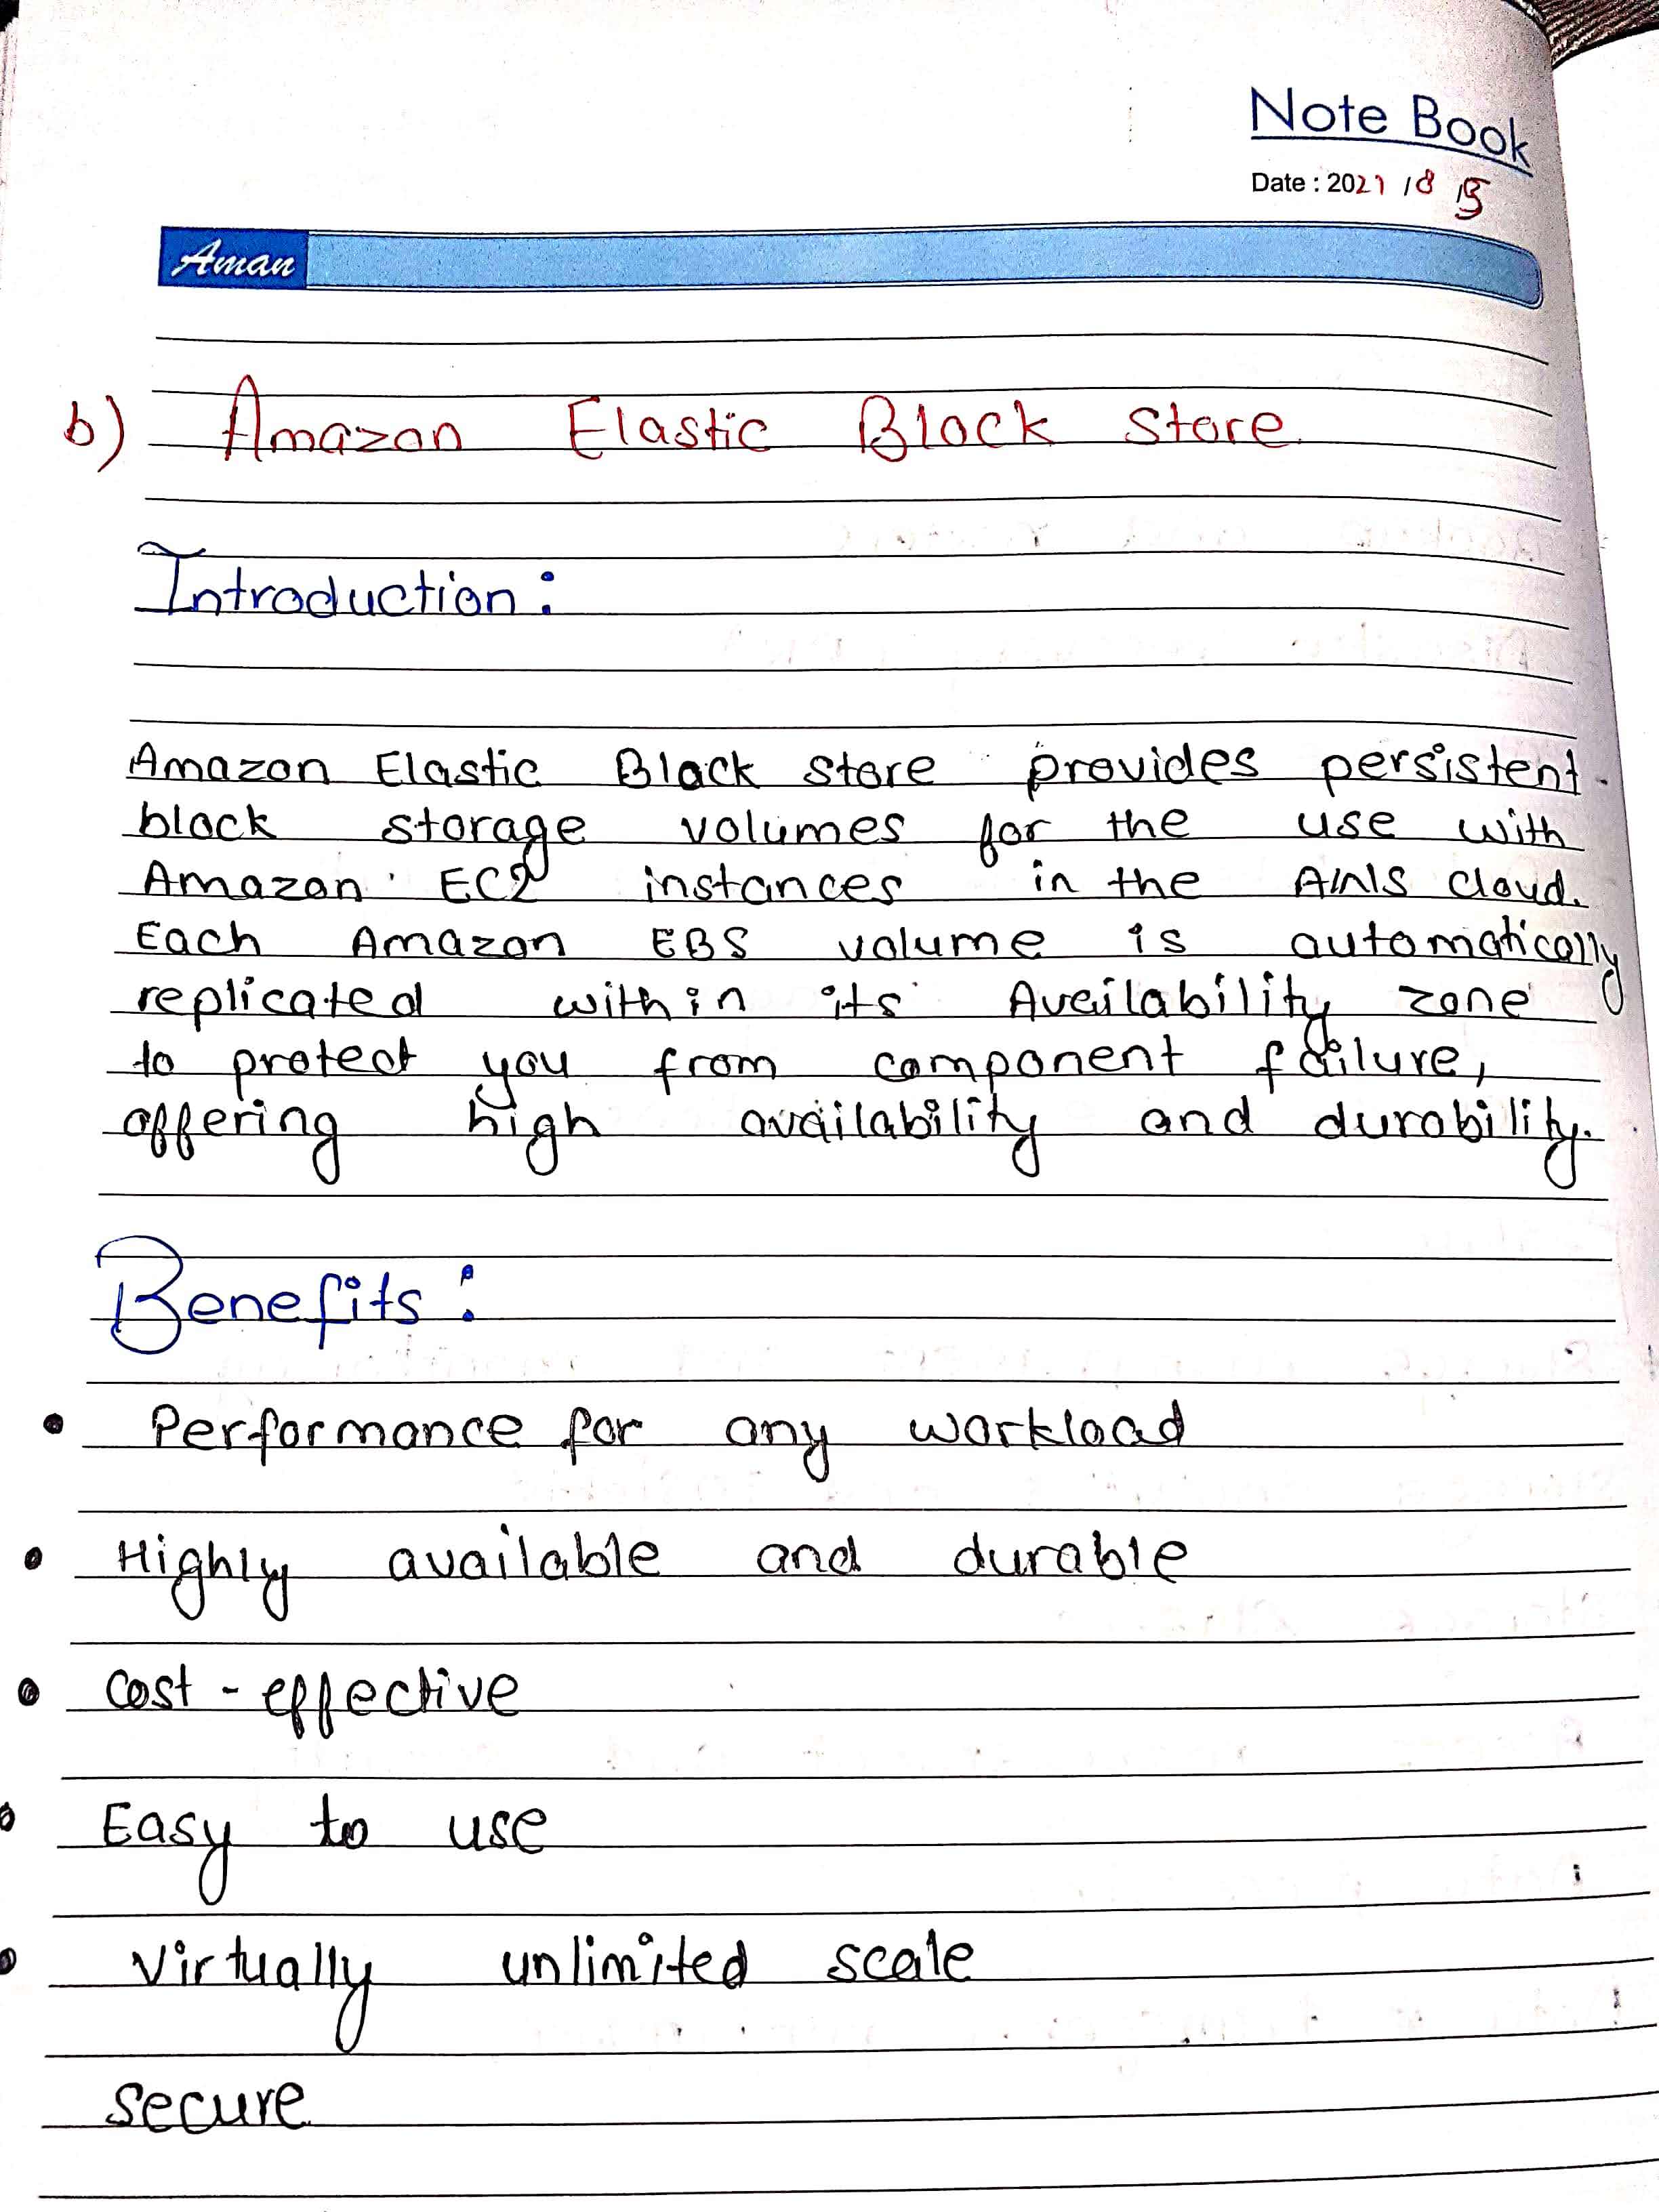 Note Book
Date : 2021 / 8 / 15
Aman
b) Amazon Elastic Block Store
Introduction :
Amazon Elastic Block Store provides persistent
block storage volumes for the use with
Amazon EC2 instances in the AWS cloud.
Each Amazon EBS volume is automatically
replicated within its Availability zone
to protect you from component failure,
offering high availability and durability.
Benefits :
• Performance for any workload
• Highly available and durable
• Cost-effective
• Easy to use
• Virtually unlimited scale
secure